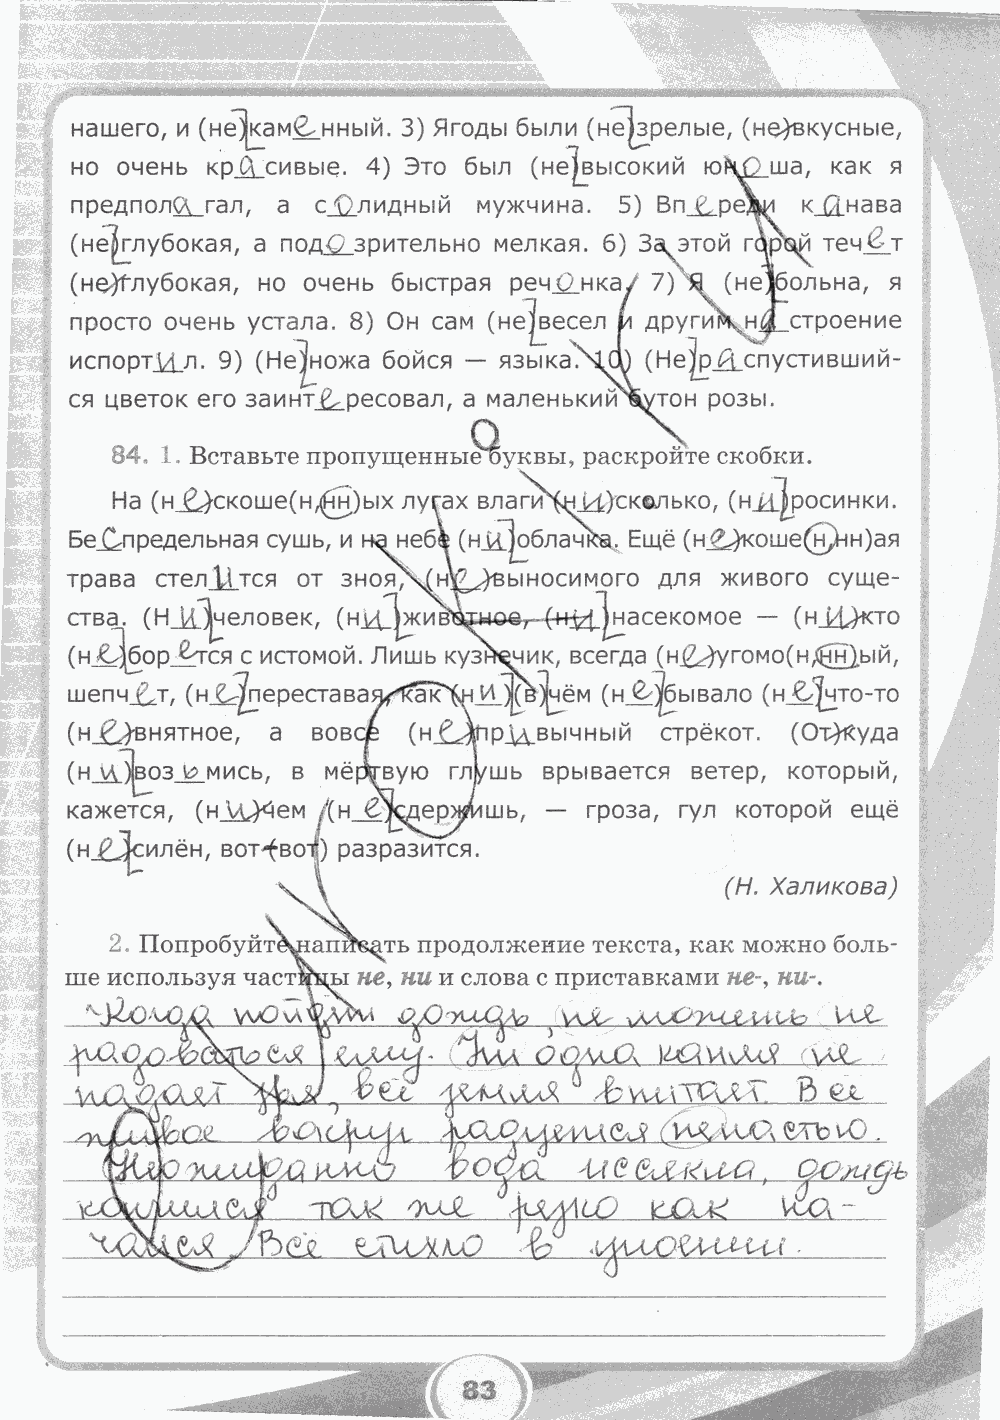 нашего, и (не)каменный. 3) Ягоды были (не)зрелые, (не)вкусные,
но очень красивые. 4) Это был (не)высокий юноша, как я
предполагал, а солидный мужчина. 5) Впереди канава
(не)глубокая, а подозрительно мелкая. 6) За этой горой течет
(не)глубокая, но очень быстрая речонка. 7) Я (не)больна, я
просто очень устала. 8) Он сам (не)весел и другим настроение
испортил. 9) (Не)ножа бойся — языка. 10) (Не)распустивший-
ся цветок его заинтересовал, а маленький бутон розы.
84. 1. Вставьте пропущенные буквы, раскройте скобки.
На (не)скоше(н,нн)ых лугах влаги (ни)сколько, (ни)росинки.
Беспредельная сушь, и на небе (ни)облачка. Ещё (не)коше(н,нн)ая
трава стелится от зноя, (не)выносимого для живого суще-
ства. (Ни)человек, (ни)животное, (ни)насекомое — (ни)кто
(не)борется с истомой. Лишь кузнечик, всегда (не)угомо(н,нн)ый,
шепчет, (не)переставая, как (ни)(в)чём (не)бывало (не)что-то
(не)внятное, а вовсе (не)привычный стрёкот. (От)куда
(ни)возьмись, в мёртвую глушь врывается ветер, который,
кажется, (ни)чем (не)сдержишь, — гроза, гул которой ещё
(не)силён, вот-(вот) разразится.
(Н. Халикова)
2. Попробуйте написать продолжение текста, как можно боль-
ше используя частицы не, ни и слова с приставками не-, ни-.
Когда пойдти дождь, не можешь не
радоваться ему. Ни одна капля не
падает зря, всё земля впитает. Все
живое вокруг радуется ненастью.
Неожиданно вода иссякла, дождь
кончился так же резко как на-
чался. Всё стихло в упоении.
83